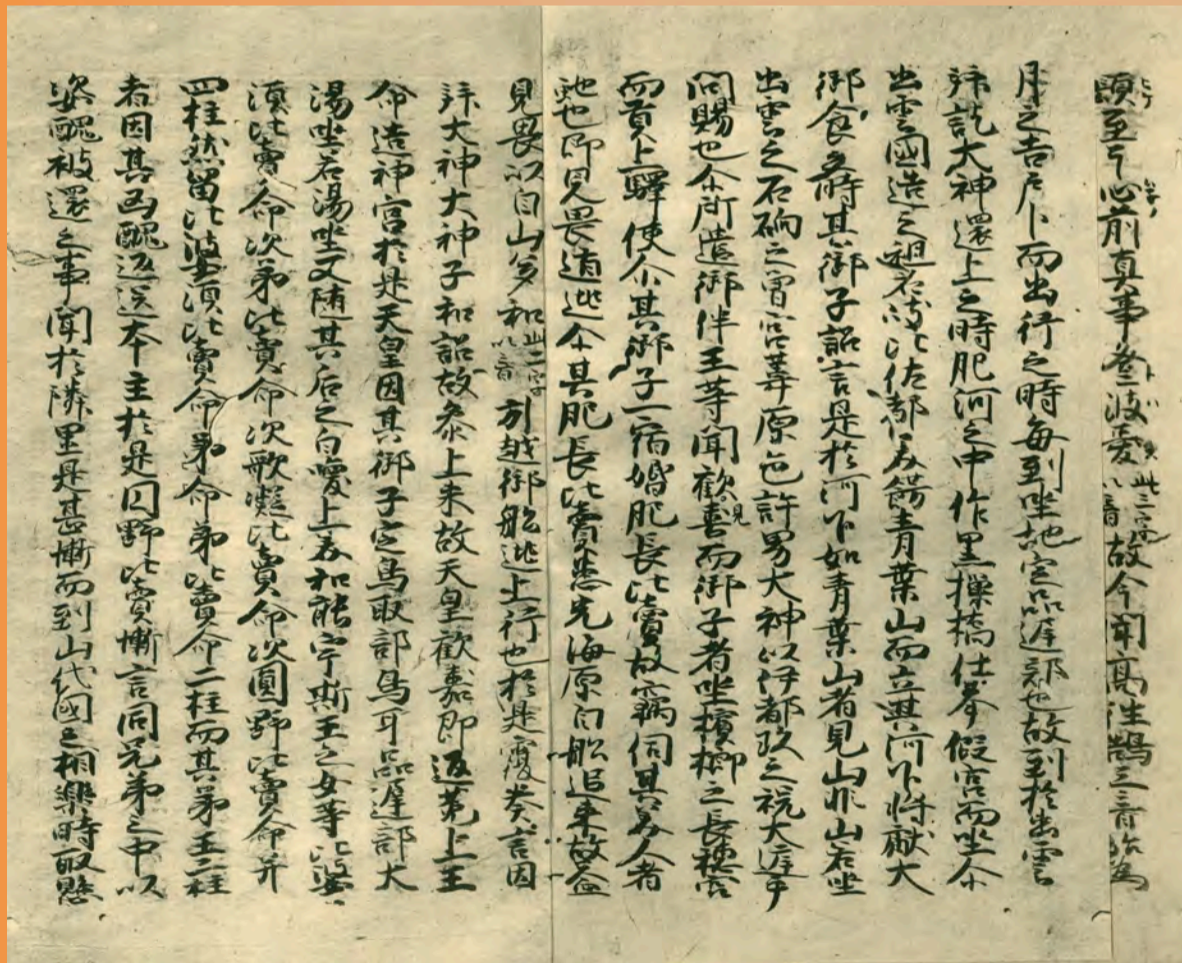 頭至于心前真事登波受此三字以音故今聞高往鵠之音始為
月之吉戸卜而出行之時毎到坐地定品遅部也故到於出雲
拝訖大神還上之時肥河之中作黒樔橋仕奉假宮而坐尒
出雲國造之祖名岐比佐都美餝青葉山而立其河下将献大
御食之時其御子詔言是於河下如青葉山者見山非山若坐
出雲之石硐之曽宮葦原色許男大神以伊都玖之祝大庭乎
問賜也尒所遣御伴王等聞歓見喜而御子者坐檳榔之長穂宮
而貢上驛使尒其御子一宿婚肥長比賣故竊伺其美人者
虵也即見畏遁逃尒其肥長比賣患光海原自舩追来故益
見畏以自山多和此二字以音引越御舩逃上行也於是覆奏言因
拝大神大神子和詔故参上来故天皇歓喜即返菟上王
命造神宮於是天皇因其御子定鳥取部鳥耳品遅部大
湯坐若湯坐又随其后之白喚上美和能宇斯王之女等比婆
須比賣命次弟比賣命次歌凝比賣命次圓野比賣命并
四柱然留比婆須比賣命弟命弟比賣命二柱而其弟王二柱
者因其凶醜返送本主於是圓野比賣慚言同兄弟之中以
姿醜被還之事聞於隣里是甚慚而到山代國之相樂時取懸